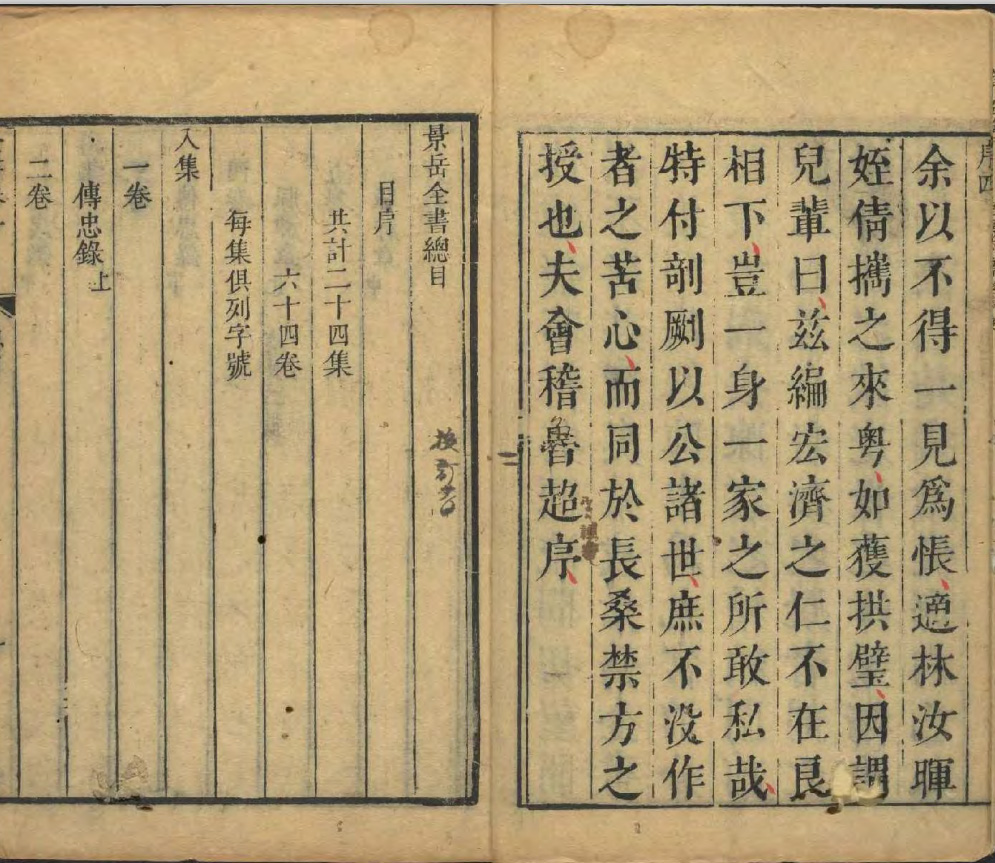 序四
余以不得一見爲悵適林汝暉
姪倩攜之來粤如獲拱璧因謂
兒輩曰兹編宏濟之仁不在良
相下豈一身一家之所敢私哉
特付剞劂以公諸世庶不没作
者之苦心而同於長桑禁方之
授也夫會稽魯超序
景岳全書總目
目序
共計二十四集
六十四卷
每集俱列字號
入集
一卷
傳忠錄上
二卷